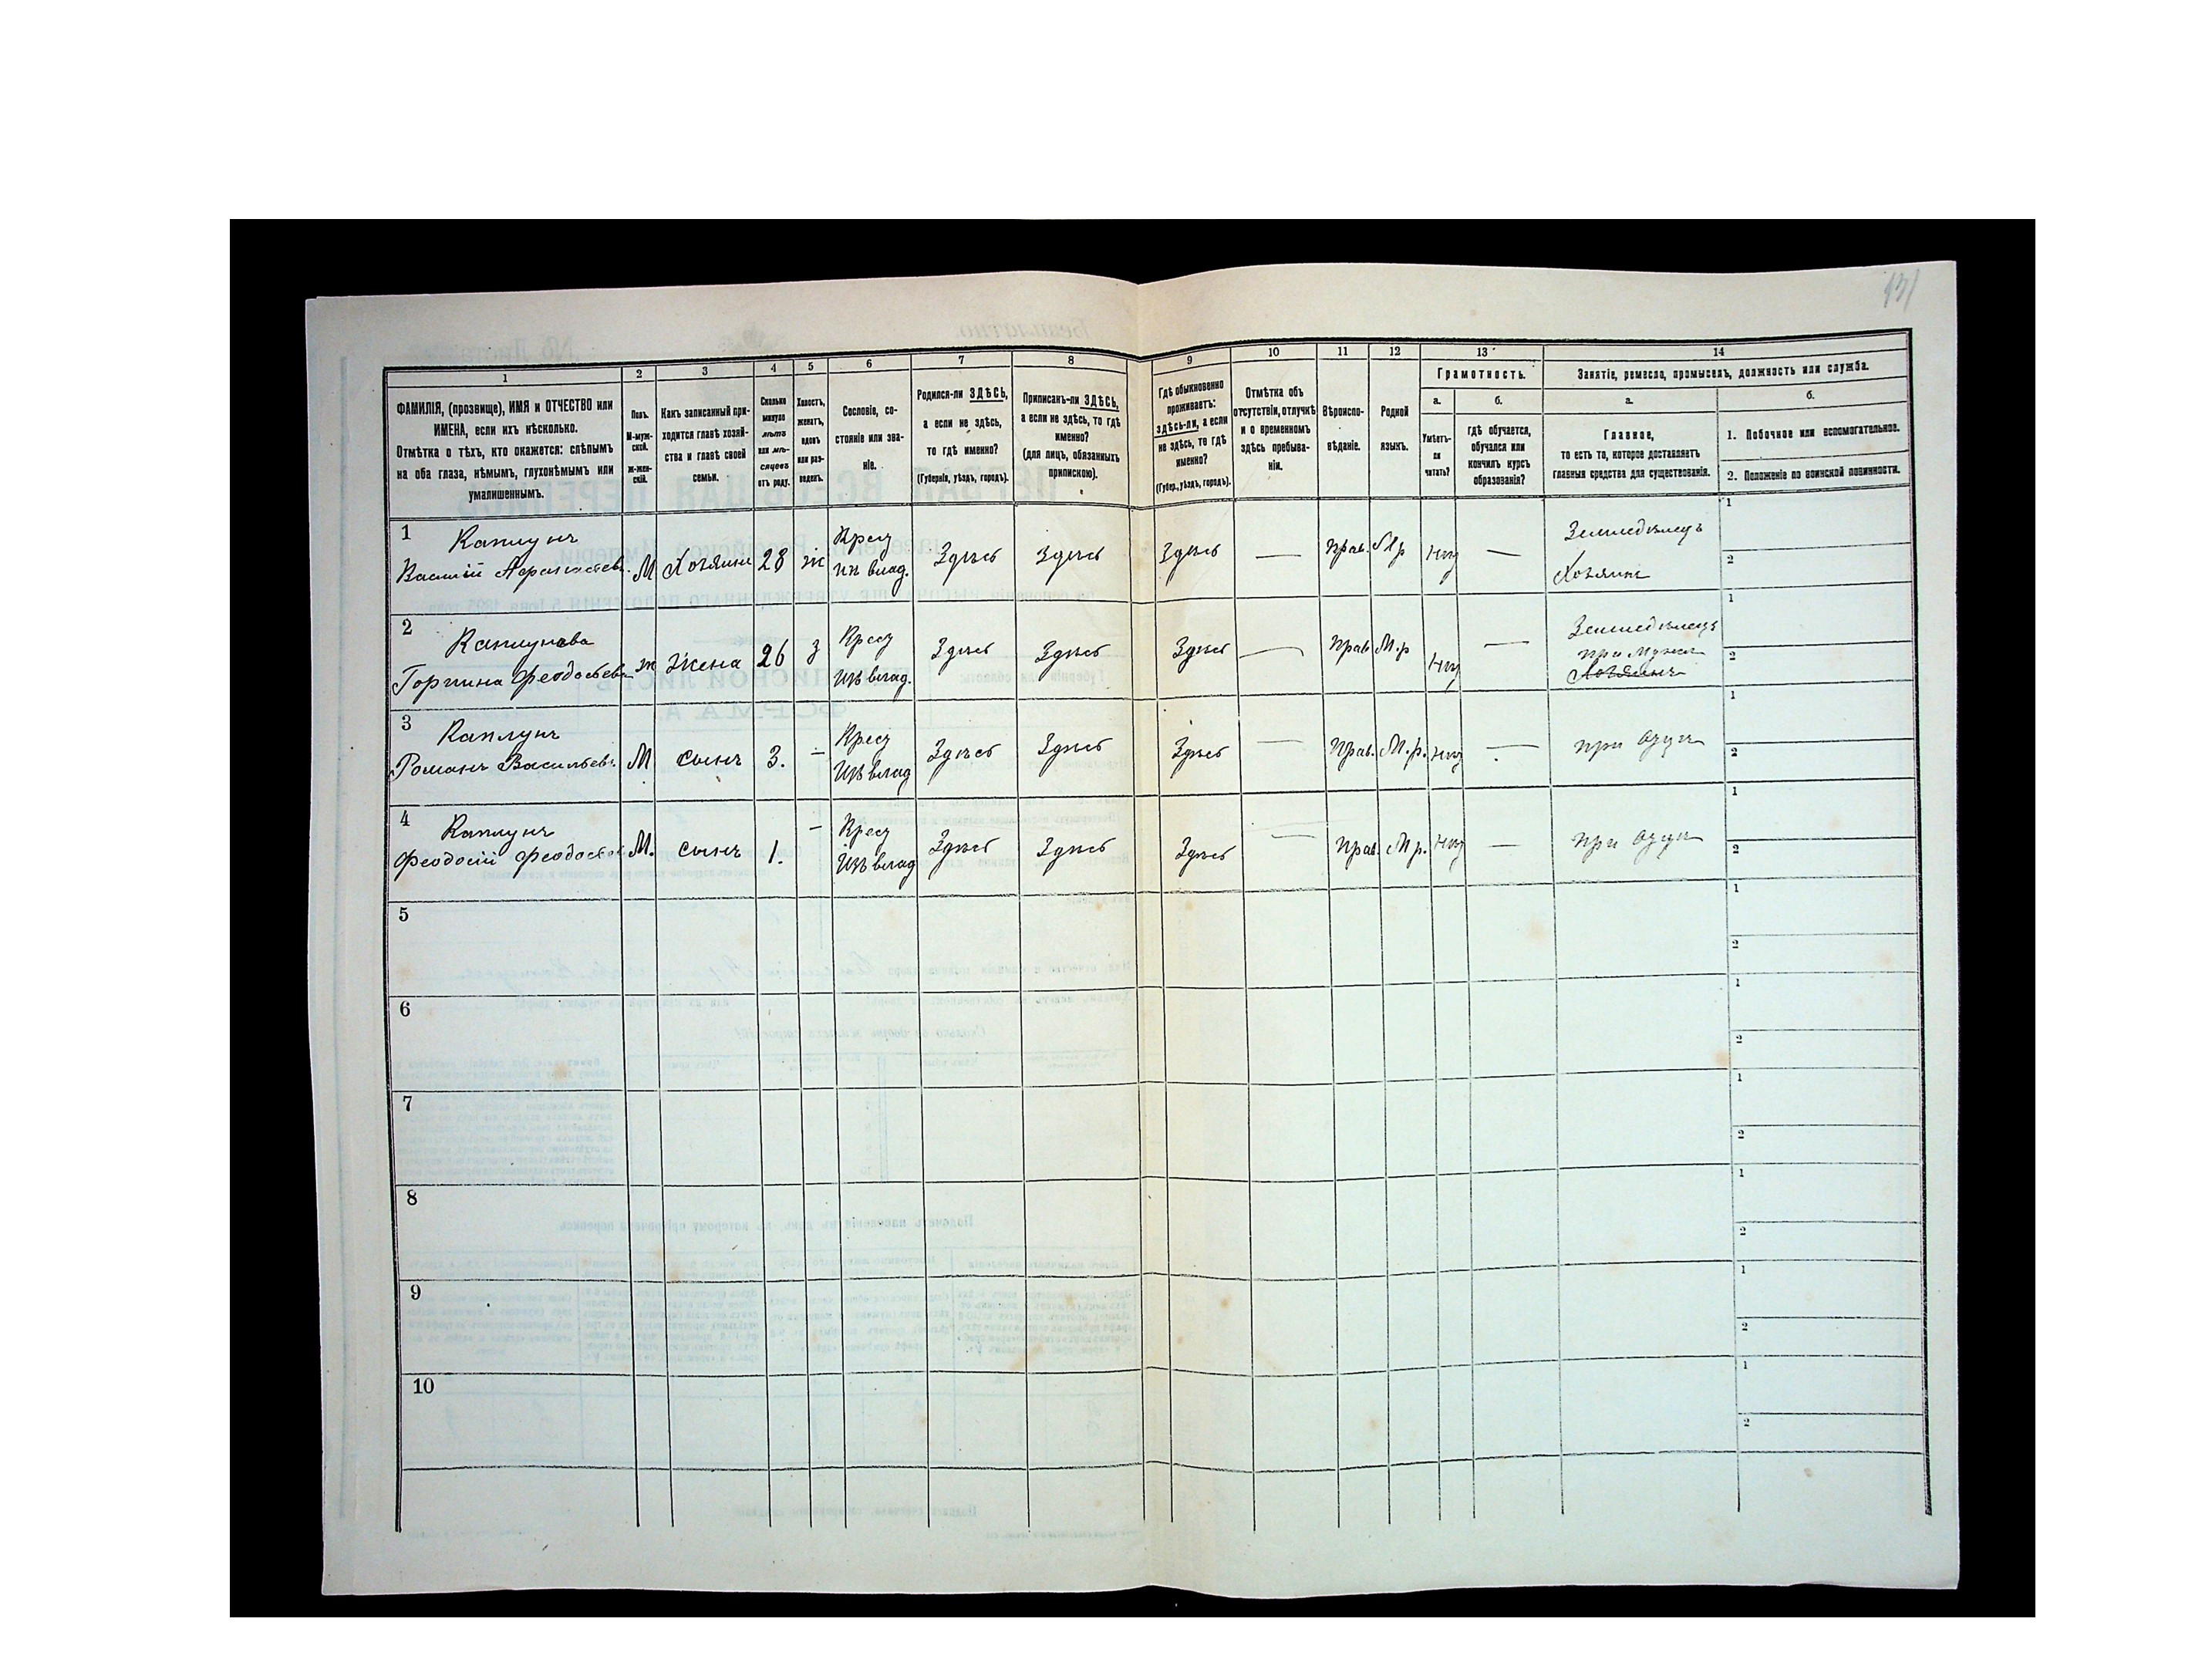 1
2
3
4
5
6
7
8
9
10
11
12
13
14
ФАМИЛІЯ, (прозвище), ИМЯ и ОТЧЕСТВО или
ИМЕНА, если ихъ нѣсколько.
Отмѣтка о тѣхъ, кто окажется: слѣпымъ
на оба глаза, нѣмымъ, глухонѣмымъ или
умалишеннымъ.
Полъ.
М-муж-
ской.
ж-жен-
скій.
Какъ записанный при-
ходится главѣ хозяй-
ства и главѣ своей
семьи.
Сколько
минуло
лѣтъ
или мѣ-
сяцевъ
отъ роду.
Холостъ,
женатъ,
вдовъ
или раз-
веденъ.
Сословіе, со-
стояніе или зва-
ніе.
Родился-ли ЗДѢСЬ,
а если не здѣсь,
то гдѣ именно?
(Губернія, уѣздъ, городъ).
Приписанъ-ли ЗДѢСЬ,
а если не здѣсь, то гдѣ
именно?
(для лицъ, обязанныхъ
припискою).
Гдѣ обыкновенно
проживаетъ:
здѣсь-ли, а если
не здѣсь, то гдѣ
именно?
(Губер., уѣздъ, городъ).
Отмѣтка объ
отсутствіи, отлучкѣ
и о временномъ
здѣсь пребыва-
ніи.
Вѣроиспо-
вѣданіе.
Родной
языкъ.
Грамотность.
а.
Умѣетъ-
ли
читать?
б.
гдѣ обучается,
обучался или
кончилъ курсъ
образованія?
Занятіе, ремесло, промыселъ, должность или служба.
а.
Главное,
то есть то, которое доставляетъ
главныя средства для существованія.
б.
1. Побочное или вспомогательное.
2. Положеніе по воинской повинности.
1 Каплунъ
Василій М Хозяинъ 28 ж Крест Здѣсь Здѣсь Здѣсь — Прав. Мр — Земледѣлецъ
влад. Хозяинъ
1
2
2 Каплунова
Горпина ж Жена 26 з Здѣсь Здѣсь Здѣсь — Прав М.р — Земледѣлецъ
Изъ влад. при мужѣ
Хозяинъ
1
2
3 Каплунъ
Романъ Васильевъ М сынъ 3. — Здѣсь Здѣсь Здѣсь — Прав. М.р. — при отцѣ
Изъ влад
1
2
4 Каплунъ
Феодосій М. сынъ 1. — Здѣсь Здѣсь Здѣсь — Прав. Мр. — при отцѣ
Изъ влад
1
2
5
1
2
6
1
2
7
1
2
8
1
2
9
1
2
10
1
2